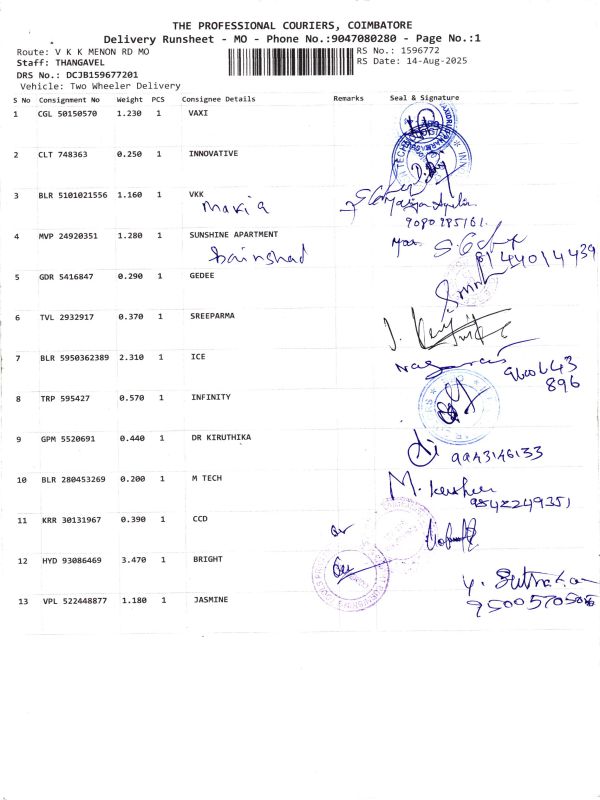 THE PROFESSIONAL COURIERS, COIMBATORE
Delivery Runsheet - MO - Phone No.:9047080280 - Page No.:1
Route: V K K MENON RD MO
RS No.: 1596772
Staff: THANGAVEL
RS Date: 14-Aug-2025
DRS No.: DCJB159677201
Vehicle: Two Wheeler Delivery
S No Consignment No Weight PCS Consignee Details Remarks Seal & Signature
1 CGL 50150570 1.230 1 VAXI
2 CLT 748363 0.250 1 INNOVATIVE
3 BLR 5101021556 1.160 1 VKK
Maria
9080285161.
4 MVP 24920351 1.280 1 SUNSHINE APARTMENT
8144014439
5 GDR 5416847 0.290 1 GEDEE
6 TVL 2932917 0.370 1 SREEPARMA
7 BLR 5950362389 2.310 1 ICE
8 TRP 595427 0.570 1 INFINITY
9 GPM 5520691 0.440 1 DR KIRUTHIKA
10 BLR 280453269 0.200 1 M TECH
9542249351
11 KRR 30131967 0.390 1 CCD
12 HYD 93086469 3.470 1 BRIGHT
13 VPL 522448877 1.180 1 JASMINE